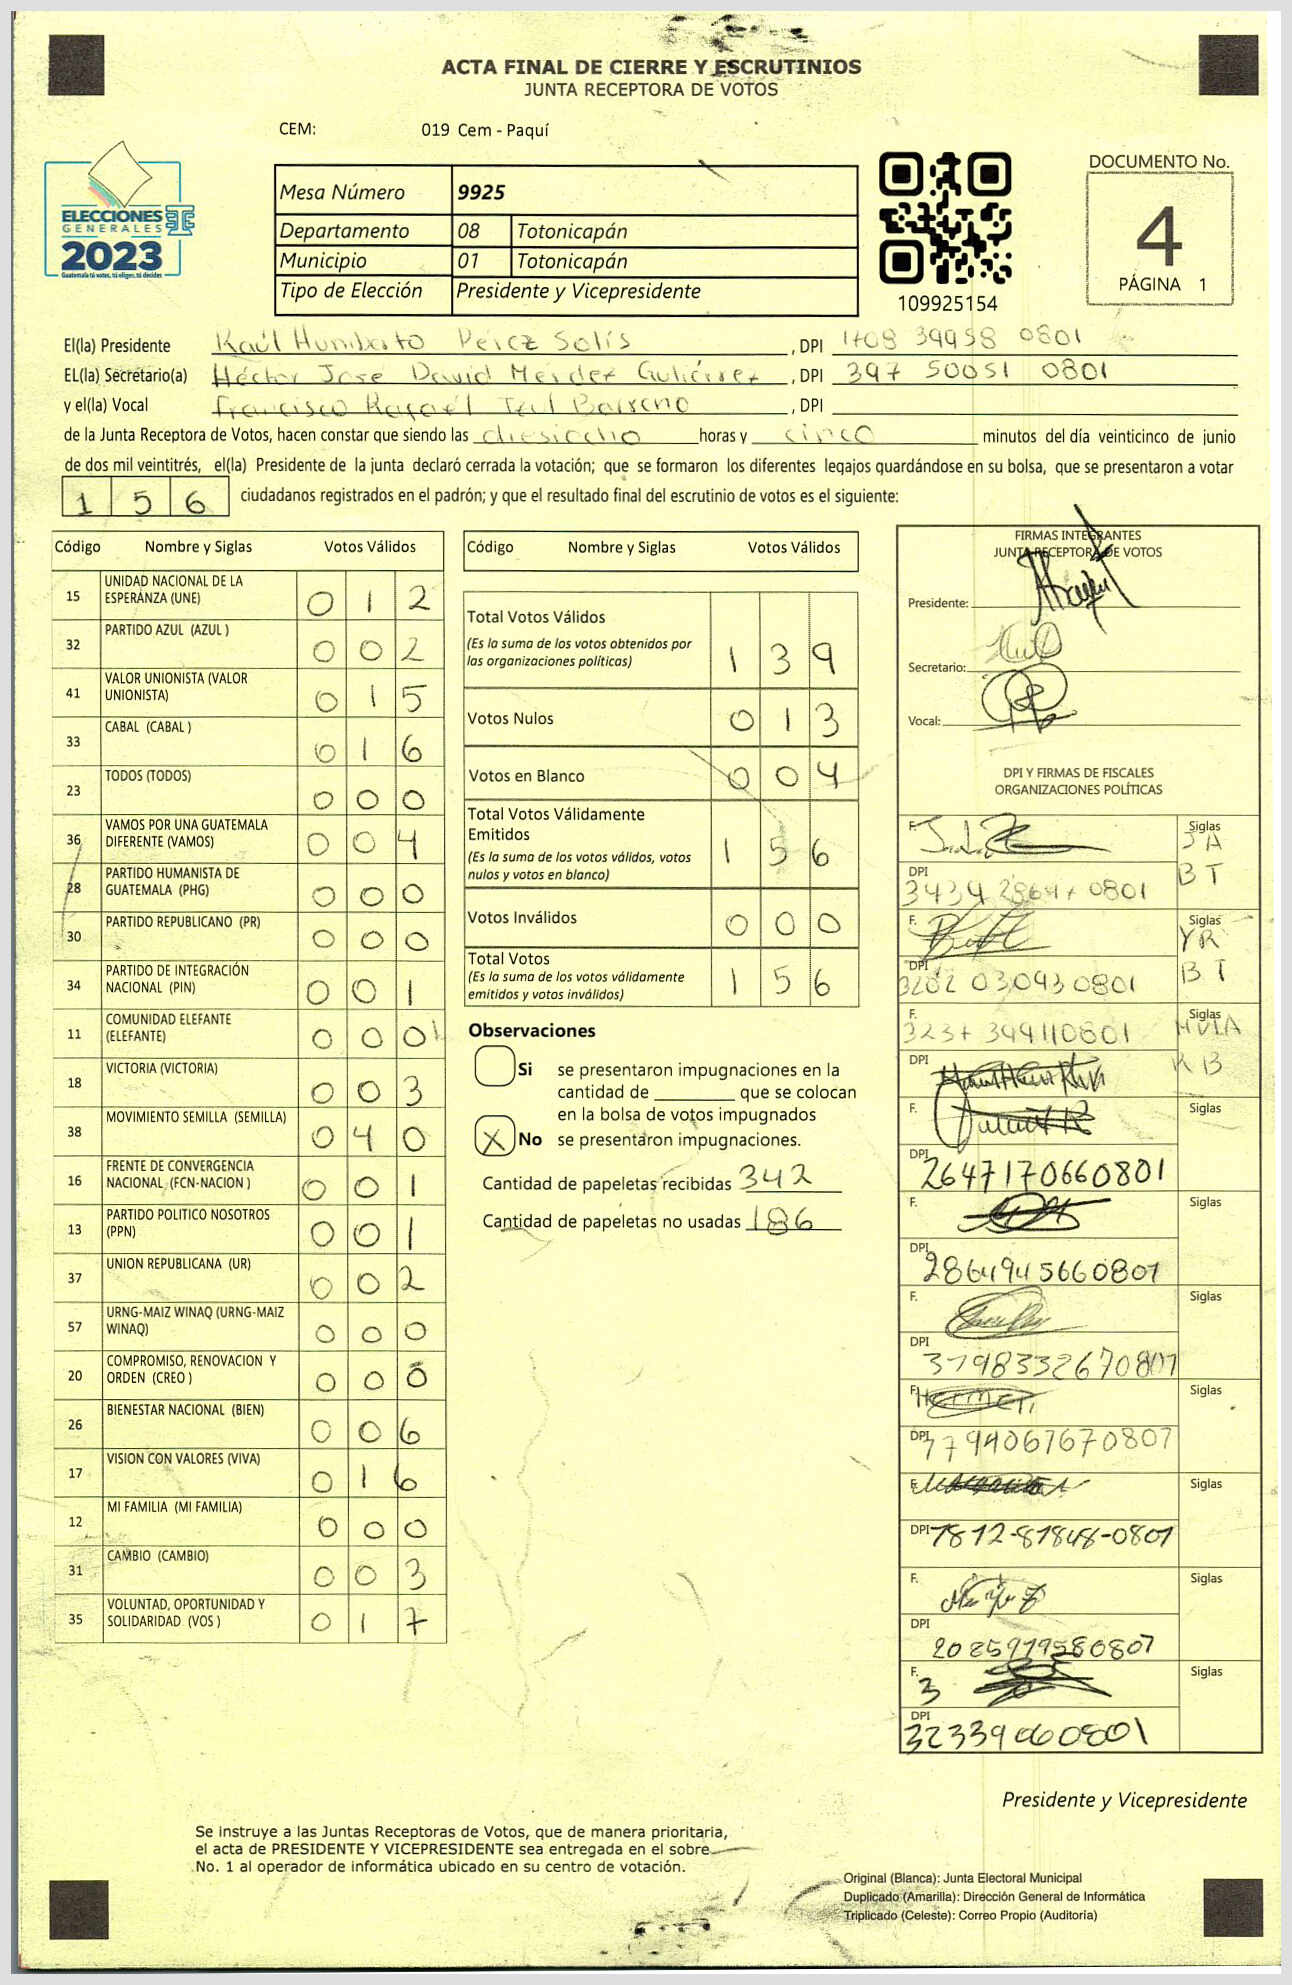 ACTA FINAL DE CIERRE Y ESCRUTINIOS
JUNTA RECEPTORA DE VOTOS
CEM: 019 Cem - Paquí
ELECCIONES
GENERALES
2023
Guatemala tú votas, tú eliges, tú decides
Mesa Número 9925
Departamento 08 Totonicapán
Municipio 01 Totonicapán
Tipo de Elección Presidente y Vicepresidente
109925154
DOCUMENTO No.
4
PÁGINA 1
El(la) Presidente Raúl Humberto Pérez Solís, DPI 1708 39958 0801
EL(la) Secretario(a) Héctor Jose David Méndez Gutiérrez, DPI 397 50051 0801
y el(la) Vocal Francisco Rafael Barreno, DPI
de la Junta Receptora de Votos, hacen constar que siendo las diesiocho horas y cinco minutos del día veinticinco de junio
de dos mil veintitrés, el(la) Presidente de la junta declaró cerrada la votación; que se formaron los diferentes legajos guardándose en su bolsa, que se presentaron a votar
1 5 6 ciudadanos registrados en el padrón; y que el resultado final del escrutinio de votos es el siguiente:
Código Nombre y Siglas Votos Válidos
15 UNIDAD NACIONAL DE LA ESPERANZA (UNE) 0 1 2
32 PARTIDO AZUL (AZUL ) 0 0 2
41 VALOR UNIONISTA (VALOR UNIONISTA) 0 1 5
33 CABAL (CABAL ) 0 1 6
23 TODOS (TODOS) 0 0 0
36 VAMOS POR UNA GUATEMALA DIFERENTE (VAMOS) 0 0 4
28 PARTIDO HUMANISTA DE GUATEMALA (PHG) 0 0 0
30 PARTIDO REPUBLICANO (PR) 0 0 0
34 PARTIDO DE INTEGRACIÓN NACIONAL (PIN) 0 0 1
11 COMUNIDAD ELEFANTE (ELEFANTE) 0 0 0
18 VICTORIA (VICTORIA) 0 0 3
38 MOVIMIENTO SEMILLA (SEMILLA) 0 4 0
16 FRENTE DE CONVERGENCIA NACIONAL (FCN-NACION ) 0 0 1
13 PARTIDO POLITICO NOSOTROS (PPN) 0 0 1
37 UNION REPUBLICANA (UR) 0 0 2
57 URNG-MAIZ WINAQ (URNG-MAIZ WINAQ) 0 0 0
20 COMPROMISO, RENOVACION Y ORDEN (CREO ) 0 0 0
26 BIENESTAR NACIONAL (BIEN) 0 0 6
17 VISION CON VALORES (VIVA) 0 1 6
12 MI FAMILIA (MI FAMILIA) 0 0 0
31 CAMBIO (CAMBIO) 0 0 3
35 VOLUNTAD, OPORTUNIDAD Y SOLIDARIDAD (VOS ) 0 1 7
Código Nombre y Siglas Votos Válidos
Total Votos Válidos 1 3 9
(Es la suma de los votos obtenidos por
las organizaciones políticas)
Votos Nulos 0 1 3
Votos en Blanco 0 0 4
Total Votos Válidamente
Emitidos 1 5 6
(Es la suma de los votos válidos, votos
nulos y votos en blanco)
Votos Inválidos 0 0 0
Total Votos 1 5 6
(Es la suma de los votos válidamente
emitidos y votos inválidos)
Observaciones
Si se presentaron impugnaciones en la
cantidad de ________ que se colocan
en la bolsa de votos impugnados
X No se presentaron impugnaciones.
Cantidad de papeletas recibidas 342
Cantidad de papeletas no usadas 186
FIRMAS INTEGRANTES
JUNTA RECEPTORA DE VOTOS
Presidente:
Secretario:
Vocal:
DPI Y FIRMAS DE FISCALES
ORGANIZACIONES POLÍTICAS
F. Siglas JA
DPI BT
F. Siglas YR
DPI 3202 03093 0801 BT
F. 3237 34911 0801 Siglas
DPI KB
F. Siglas
DPI 2647170660801
F. Siglas
DPI 2864945660801
F. Siglas
DPI 3798332670801
F. Siglas
DPI 7794067670801
F. Siglas
DPI 1812-81848-0801
F. Siglas
DPI 2085979580807
F. 3 Siglas
DPI 32339060801
Presidente y Vicepresidente
Se instruye a las Juntas Receptoras de Votos, que de manera prioritaria,
el acta de PRESIDENTE Y VICEPRESIDENTE sea entregada en el sobre
No. 1 al operador de informática ubicado en su centro de votación.
Original (Blanca): Junta Electoral Municipal
Duplicado (Amarilla): Dirección General de Informática
Triplicado (Celeste): Correo Propio (Auditoría)